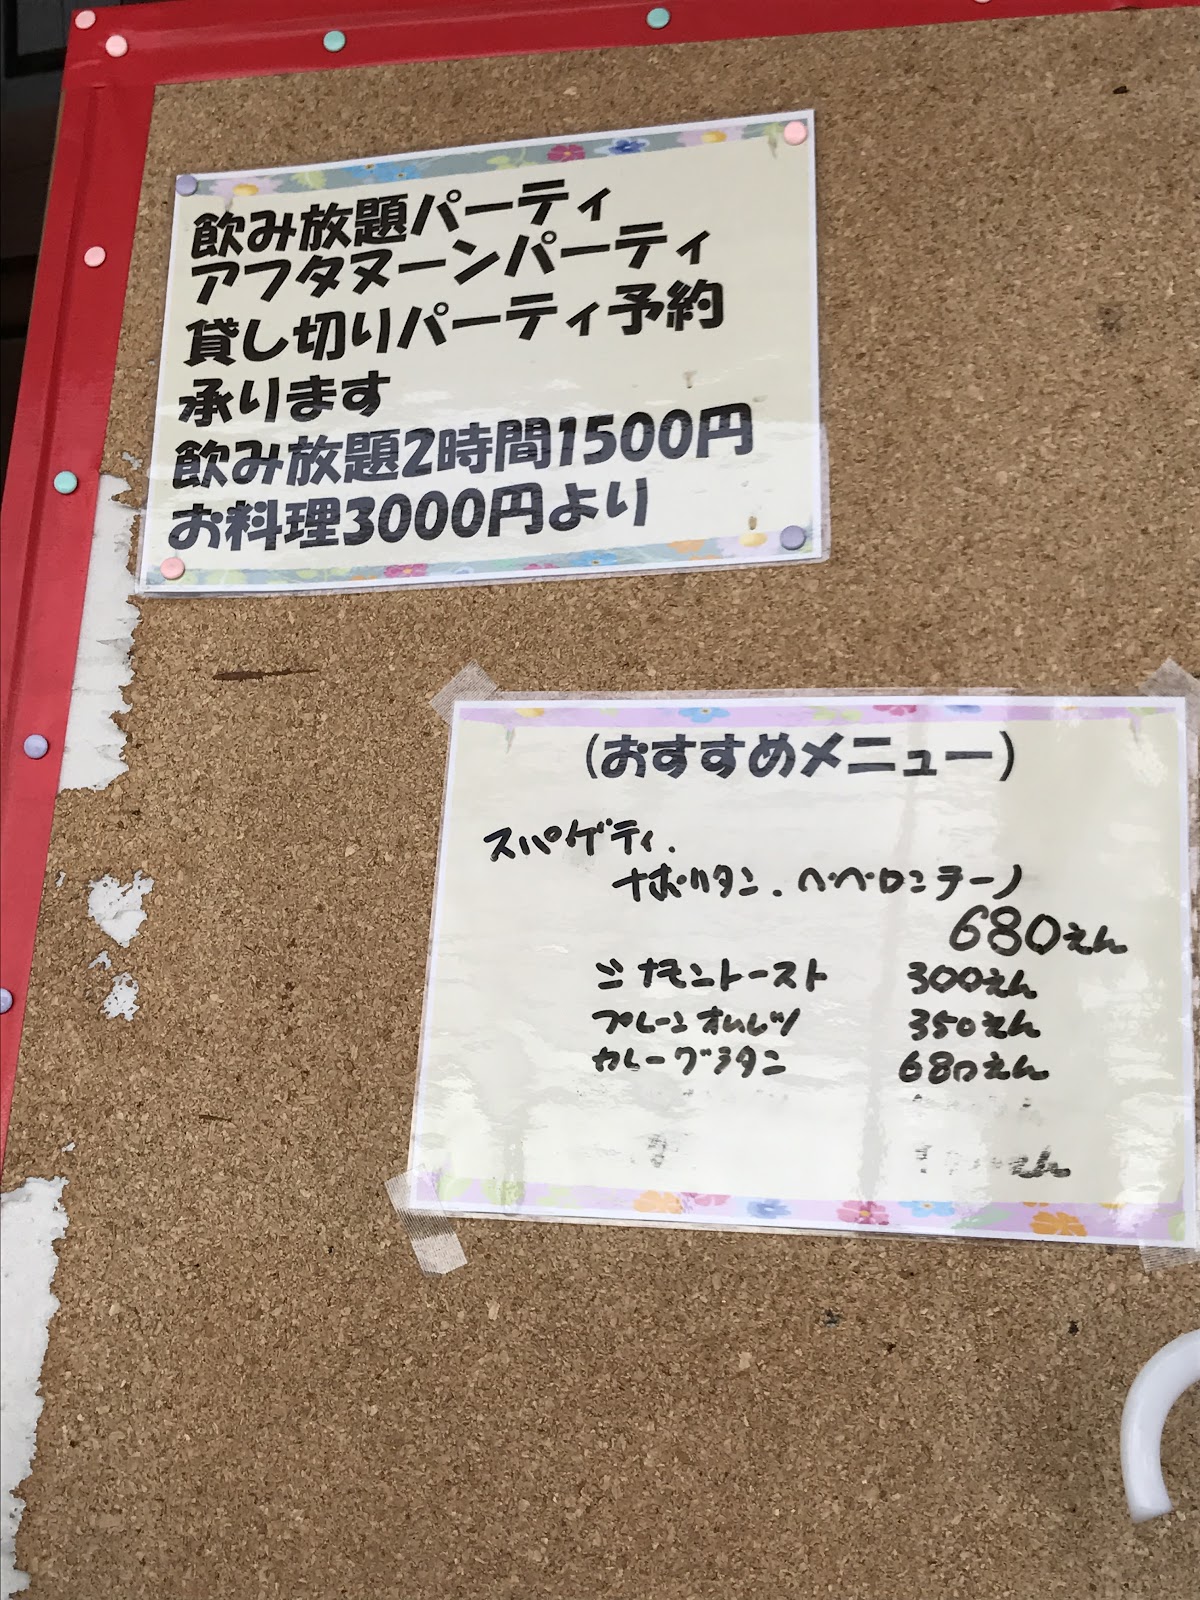 飲み放題パーティ
アフタヌーンパーティ
貸し切りパーティ予約
承ります
飲み放題2時間1500円
お料理3000円より
(おすすめメニュー)
スパゲティ.
ナポリタン.ペペロンチーノ
680えん
シナモントースト 300えん
プレーンオムレツ 350えん
カレーグラタン 680えん